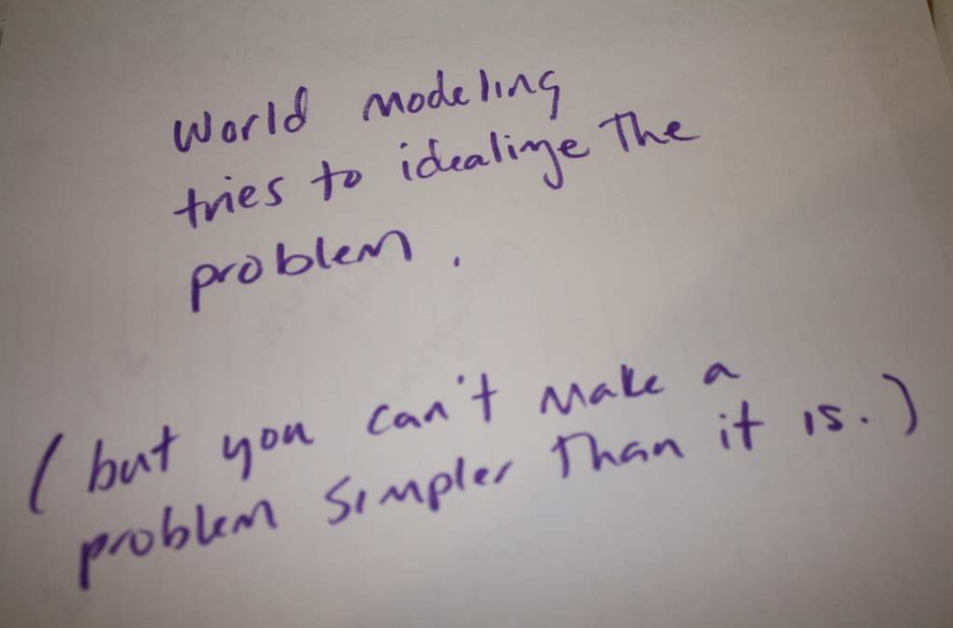 World modeling
tries to idealize the
problem.
(but you can't make a
problem simpler than it is.)